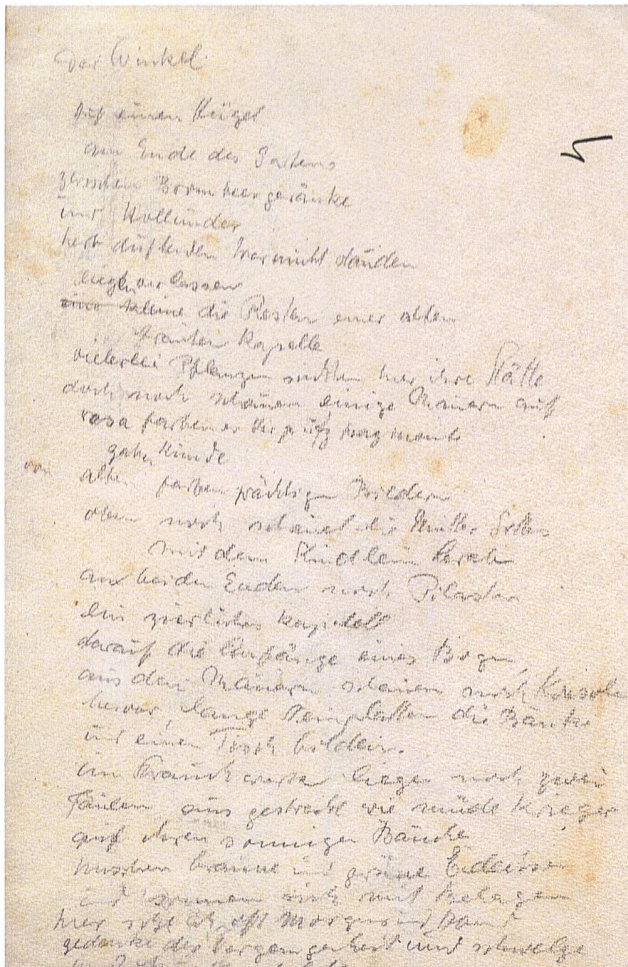 Der Winkel
Auf einem Hügel
am Ende des Gartens
zwischen Brombeergeränke
und Hollunder
herb duftenden Wermutstauden
liegen verlassen
die Resten einer alten
Kapelle
vielerlei Pflanzen suchten hier ihre Stätte
doch noch schauen einige Mauern auf
rosa farbener Verputz
geben Kunde
von
alten farbenprächtigen Bildern
oben noch schaut die Mutter Gottes
mit dem Kindlein herab
an beiden Enden noch Pilaster
ein zierliches Kapitell
darauf die Anfänge eines Bogen
aus den Mauern schauen noch Konsolen
hervor, lange Steinplatten die Bänke
und einen Tisch bilden.
im Krautwerke liegen noch zwei
Säulen ausgestreckt wie müde Krieger
auf ihren sonnigen Bäuche
huschen braune und grüne Eidechsen
und sonnen sich mit Behagen
hier sitze ich oft Morgens und
gedenke der Vergangenheit und schwelge